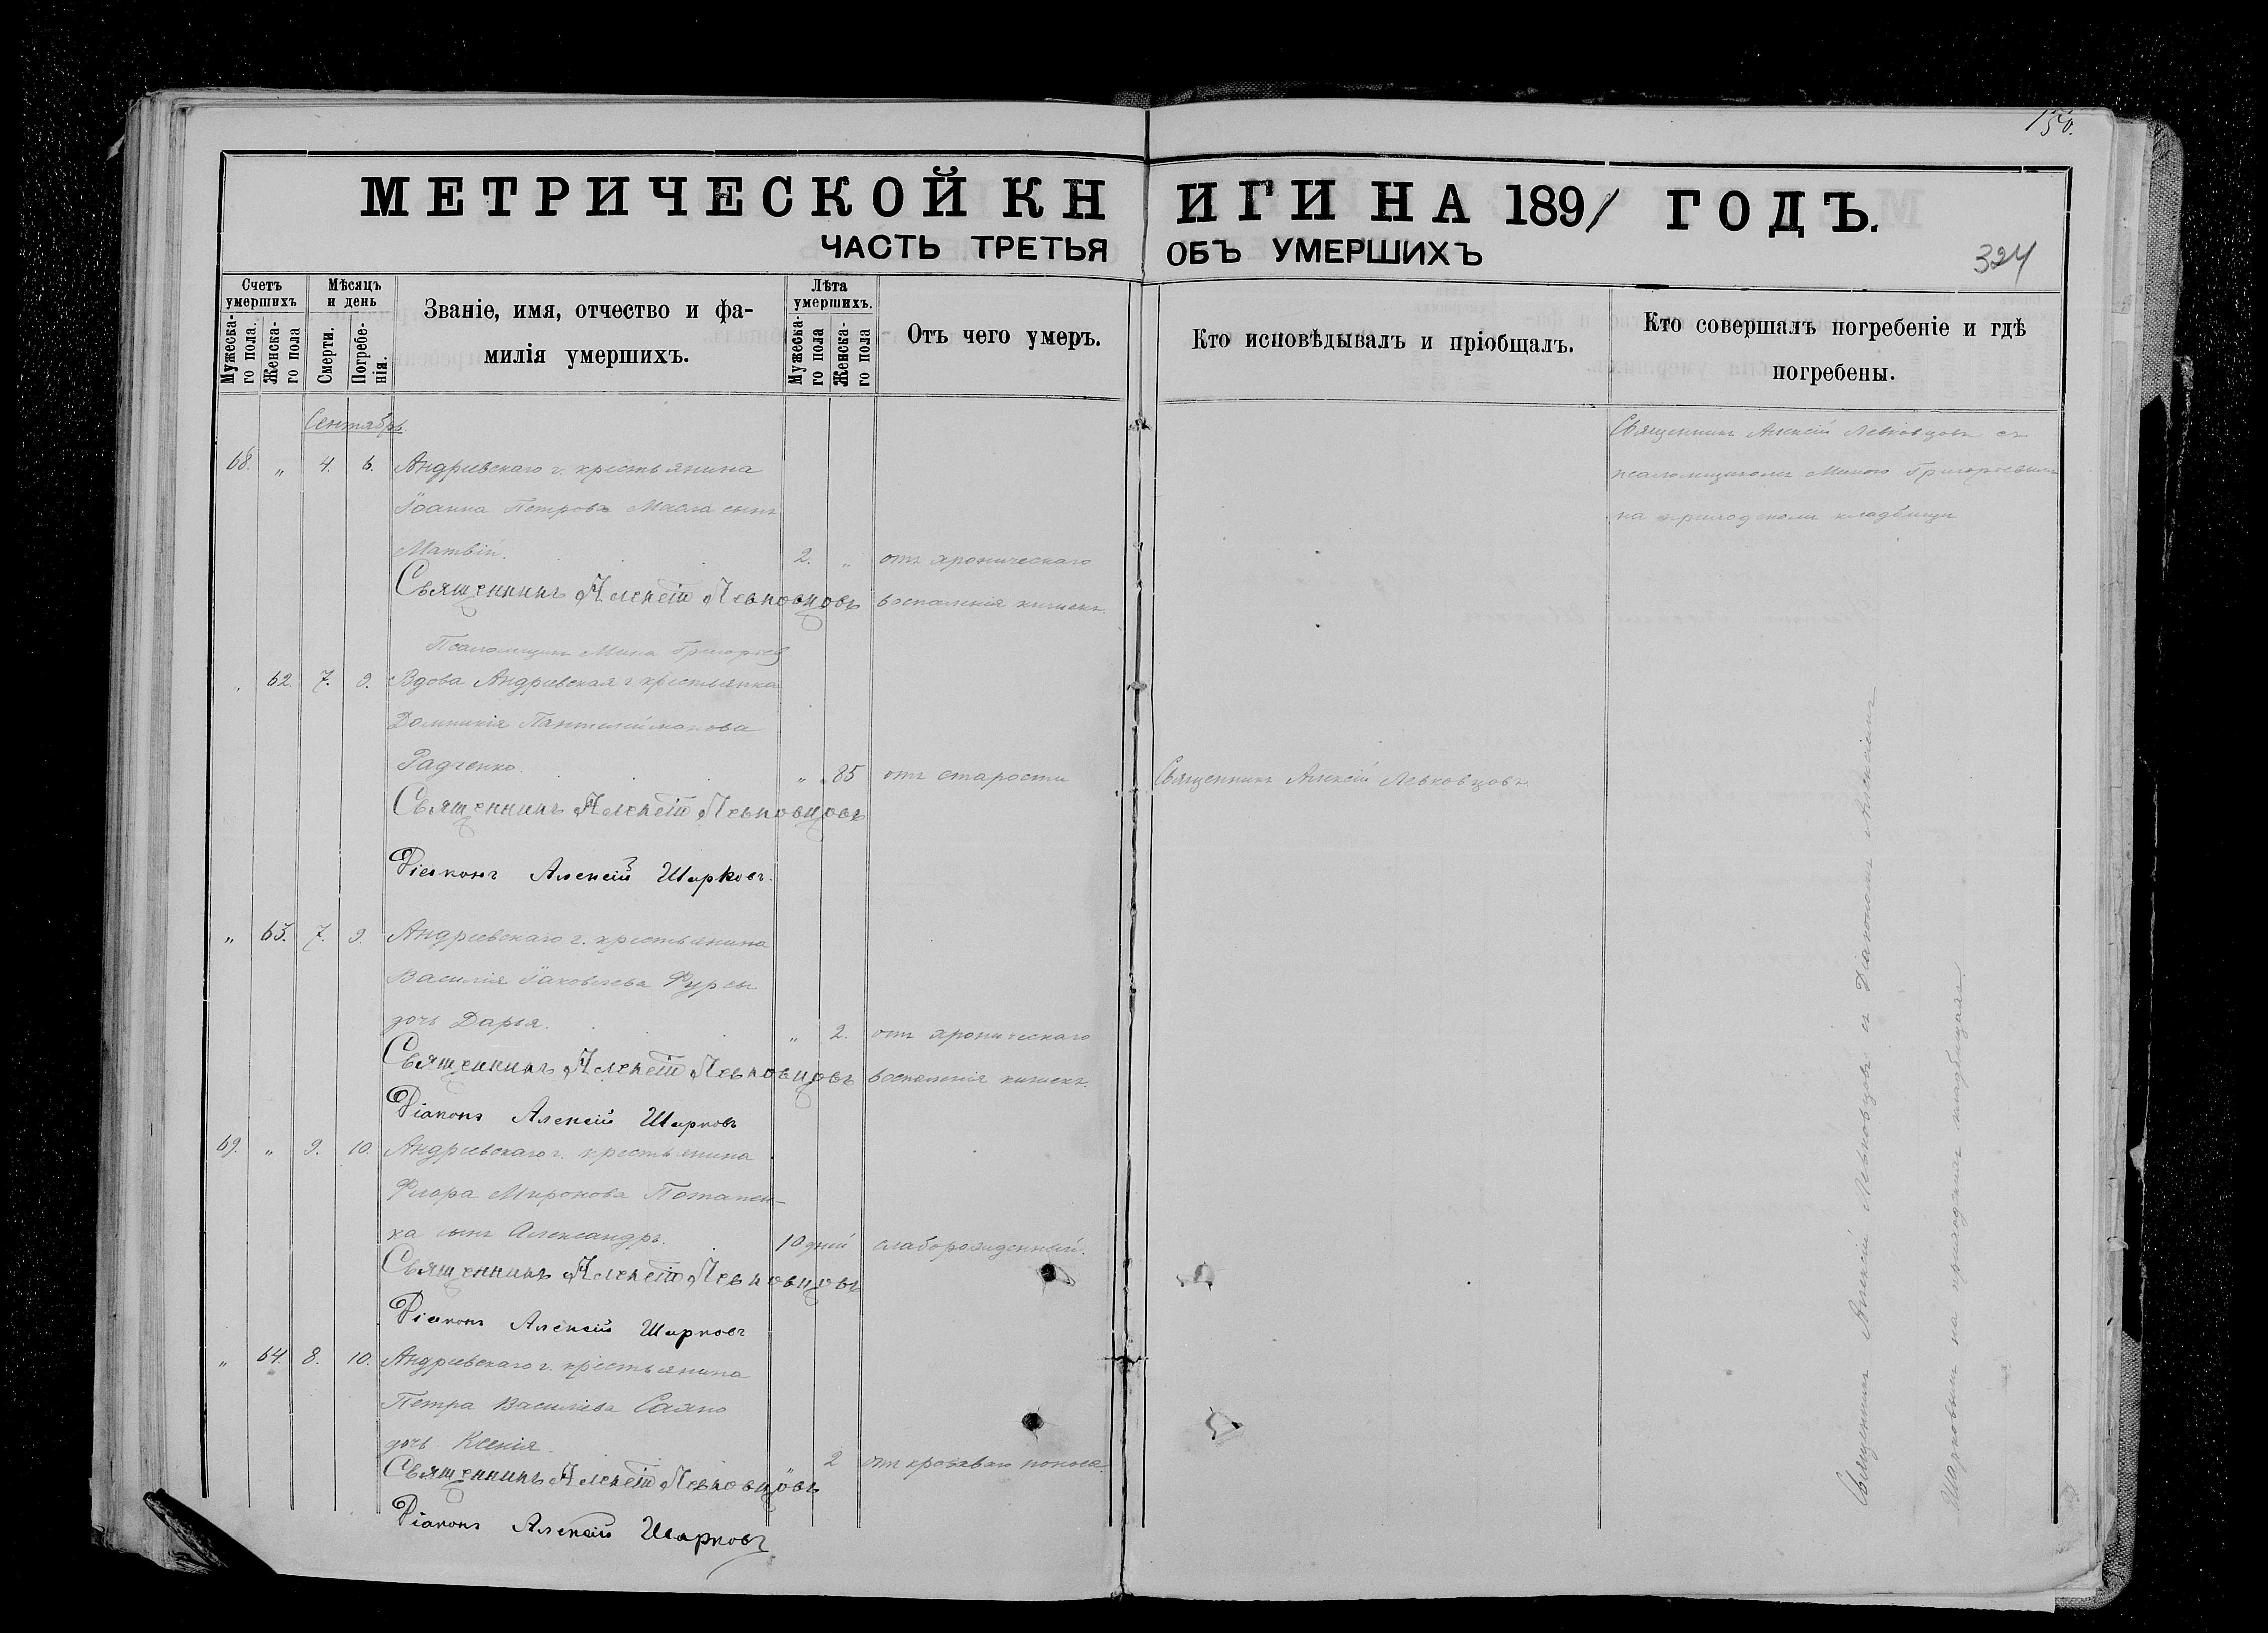 150.
МЕТРИЧЕСКОЙ КНИГИ НА 1891 ГОДЪ.
ЧАСТЬ ТРЕТЬЯ ОБЪ УМЕРШИХЪ
324
Счетъ умершихъ
Мужеска-го пола.
Женска-го пола
Мѣсяцъ и день
Смерти.
Погребе-нія.
Званіе, имя, отчество и фа-
милія умершихъ.
Лѣта умершихъ.
Мужеска-го пола
Женска-го пола
Отъ чего умеръ.
Кто исповѣдывалъ и пріобщалъ.
Кто совершалъ погребеніе и гдѣ
погребены.
Сентябрь
Священникъ Алексій Левковцовъ съ
68. „ 4. 6. Андреевскаго г. крестьянина
псаломщикомъ Миною Григорьевымъ
Іоанна Петрова Масла сынъ
на приходскомъ кладбищѣ
Матвій. 2. „ отъ хроническаго
Священникъ Алексій Левковцовъ воспаленія кишекъ.
Псаломщикъ Мина Григорьев
„ 62. 7. 9. Вдова Андреевская г. крестьянка
Домникія Пантелеймонова
Радченко. „ 85 отъ старости Священникъ Алексій Левковцовъ.
Священникъ Алексій Левковцовъ
Діаконъ Алексій Шарковъ.
„ 63. 7. 9. Андреевскаго г. крестьянина
Василія Іаковлева Фурсы
дочь Дарья. „ 2. отъ хроническаго
Священникъ Алексій Левковцовъ воспаленія кишекъ.
Діаконъ Алексій Шарковъ
69. „ 9. 10. Андреевскаго г. крестьянина
Флора Миронова Потапен-
ка сынъ Александръ. 10 дній слаборожденный.
Священникъ Алексій Левковцовъ
Діаконъ Алексій Шарковъ
„ 64. 8. 10. Андреевскаго г. крестьянина
Петра Василіева
дочь Ксенія. „ 2 отъ кроваваго поноса.
Священникъ Алексій Левковцовъ
Діаконъ Алексій Шарковъ
Священникъ Алексій Левковцовъ съ Діакономъ Алексіемъ
Шарковымъ на приходскомъ кладбищѣ.